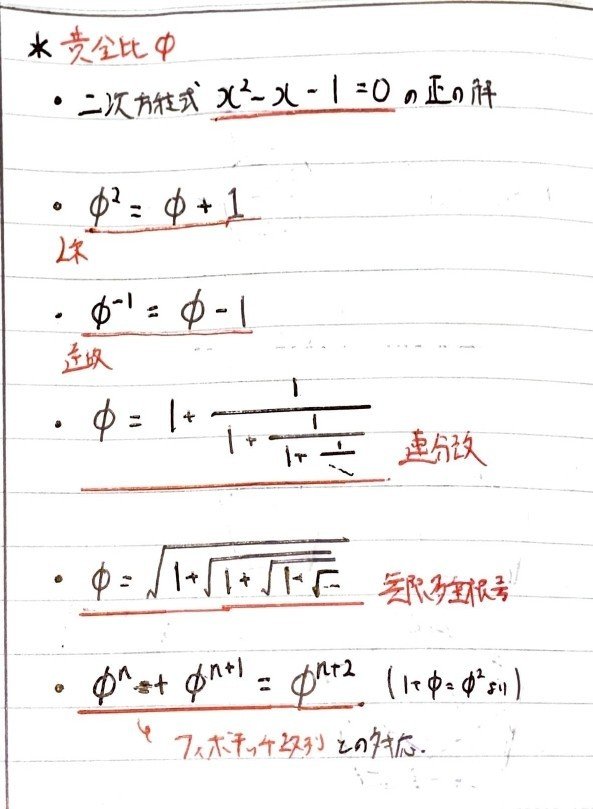 * 黄金比 φ
・ 二次方程式 x² - x - 1 = 0 の正の解
・ φ² = φ + 1
2乗
・ φ⁻¹ = φ - 1
逆数
・ φ = 1 + 1/(1 + 1/(1 + 1/⋱)) 連分数
・ φ = √(1+√(1+√(1+√…))) 無限多重根号
・ φⁿ + φⁿ⁺¹ = φⁿ⁺² (1+φ=φ²より)
↳ フィボナッチ数列 との対応.